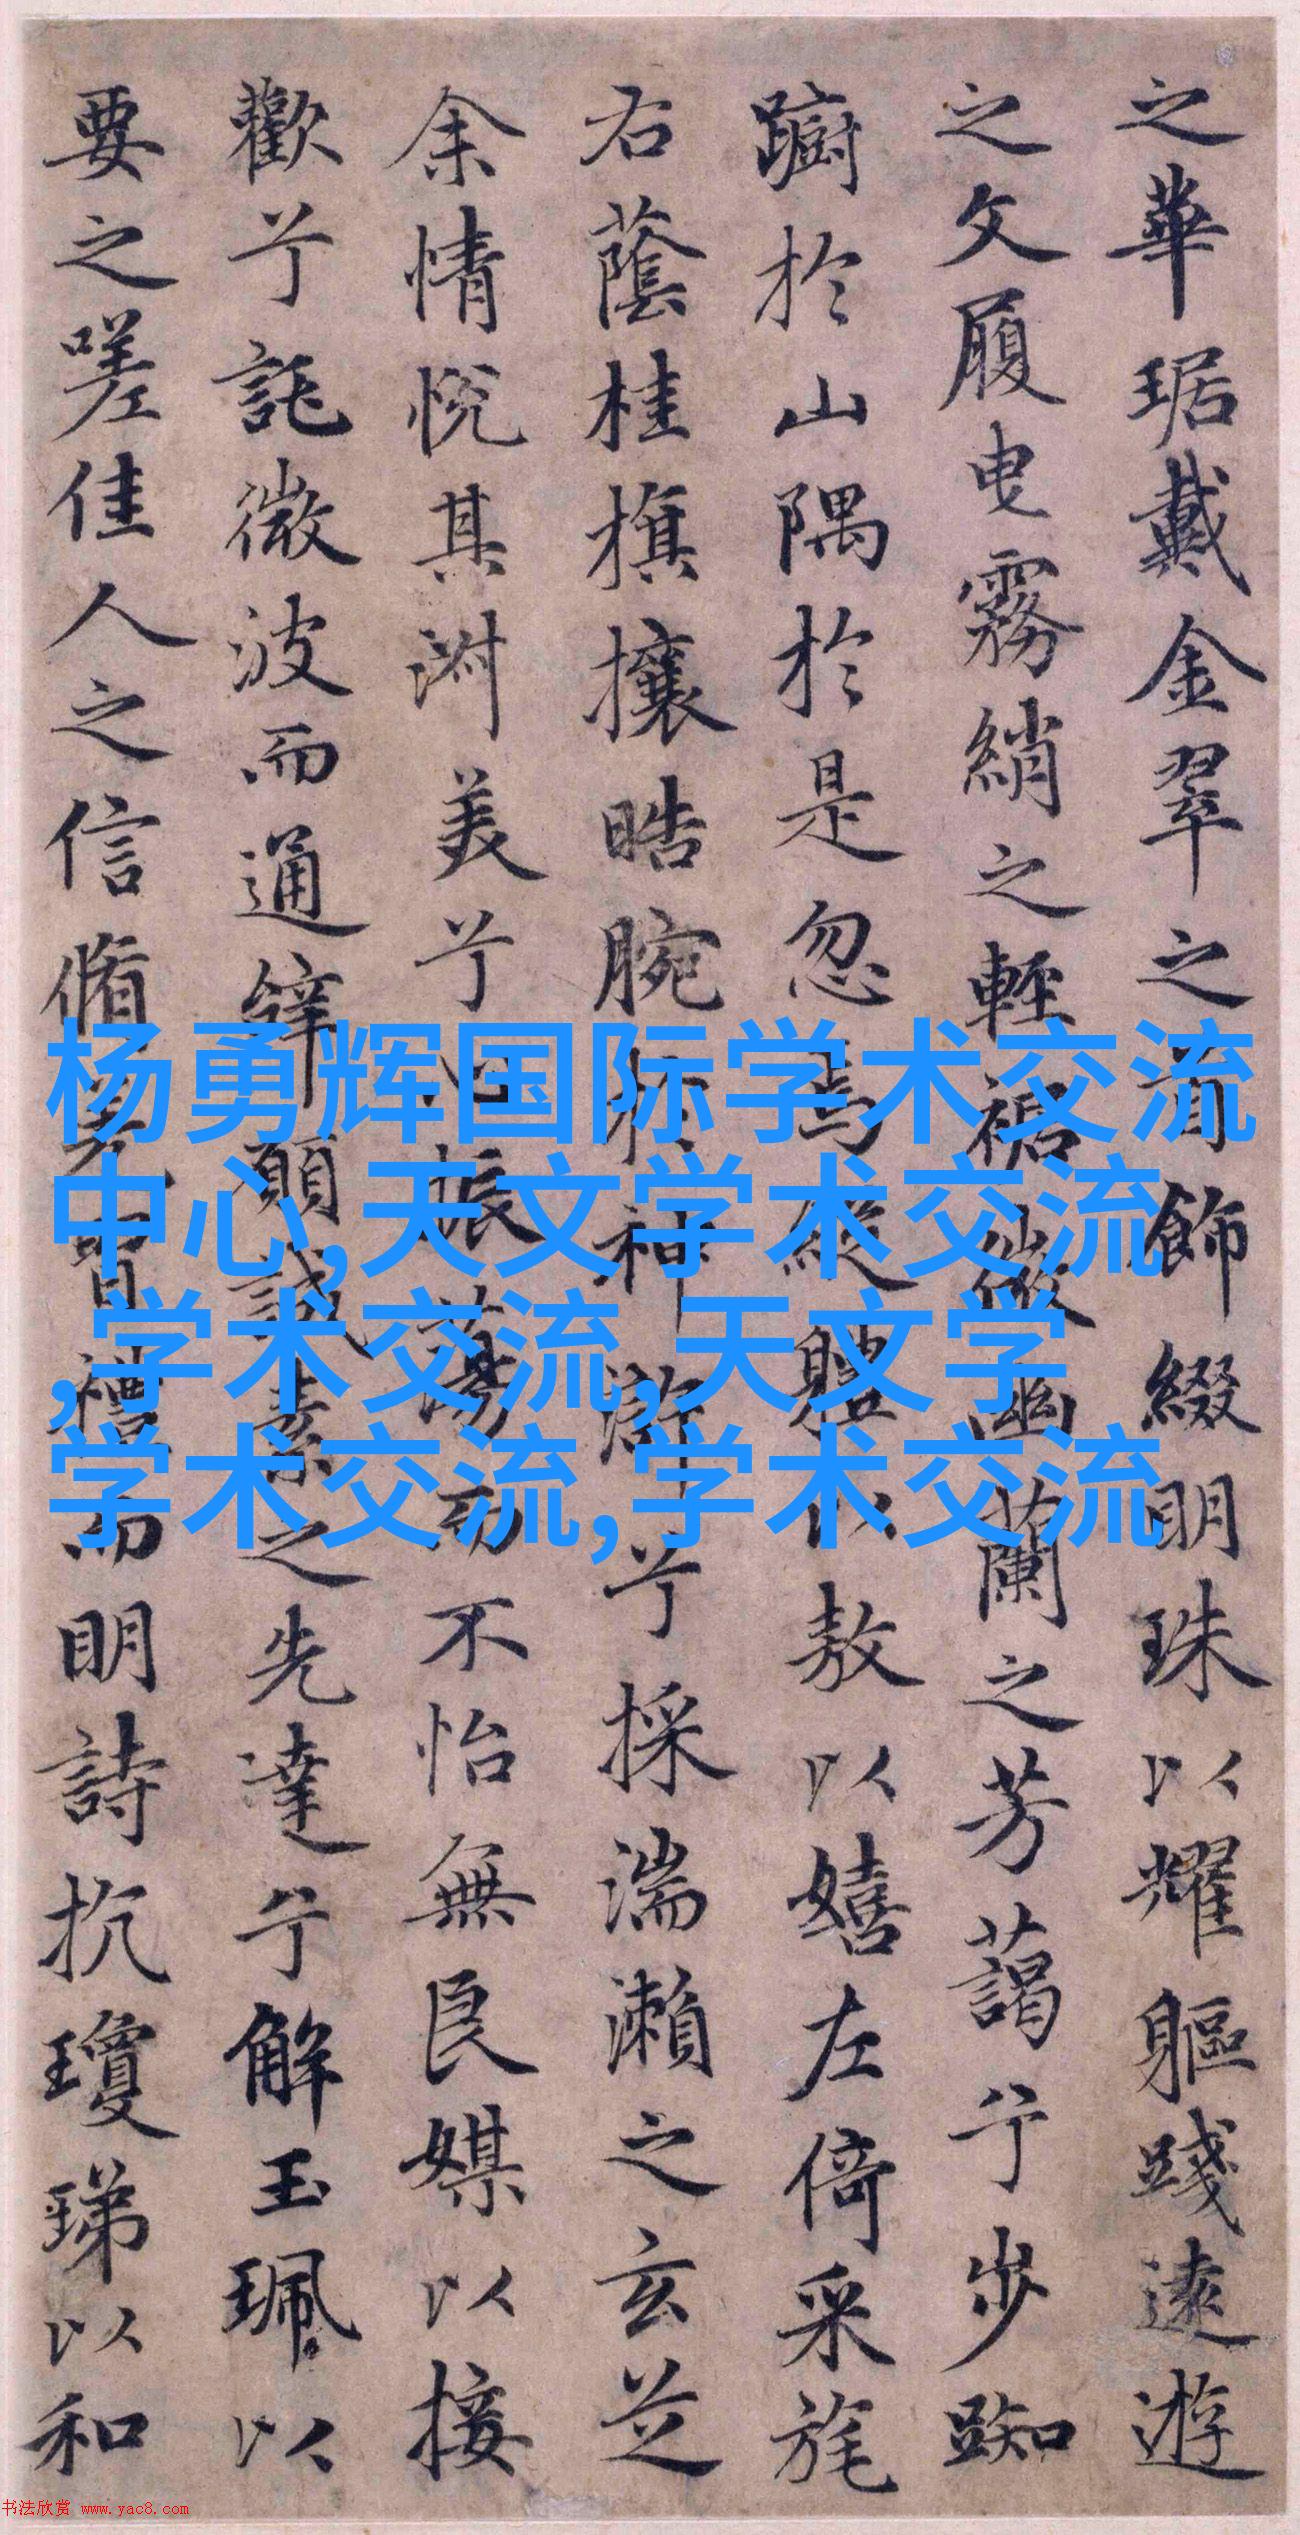 之華琚戴金翠之首飾綴明珠以耀軀踐遠遊
之文履曳霧綃之輕裾微幽蘭之芳藹兮步踟
蹰於山隅於是忽焉縱體以敖以嬉左倚采旄
右蔭桂旗攘晧腕於神滸兮採湍瀨之玄芝
余情悅其淑美兮心振蕩而不怡無良媒以接
歡兮託微波而通辭願誠素之先達兮解玉珮以
要之嗟佳人之信脩羌習禮而明詩抗瓊珶以和
杨勇辉国际学术交流
中心,天文学术交流
,学术交流,天文学
学术交流,学术交流
书法欣赏 www.yac8.com